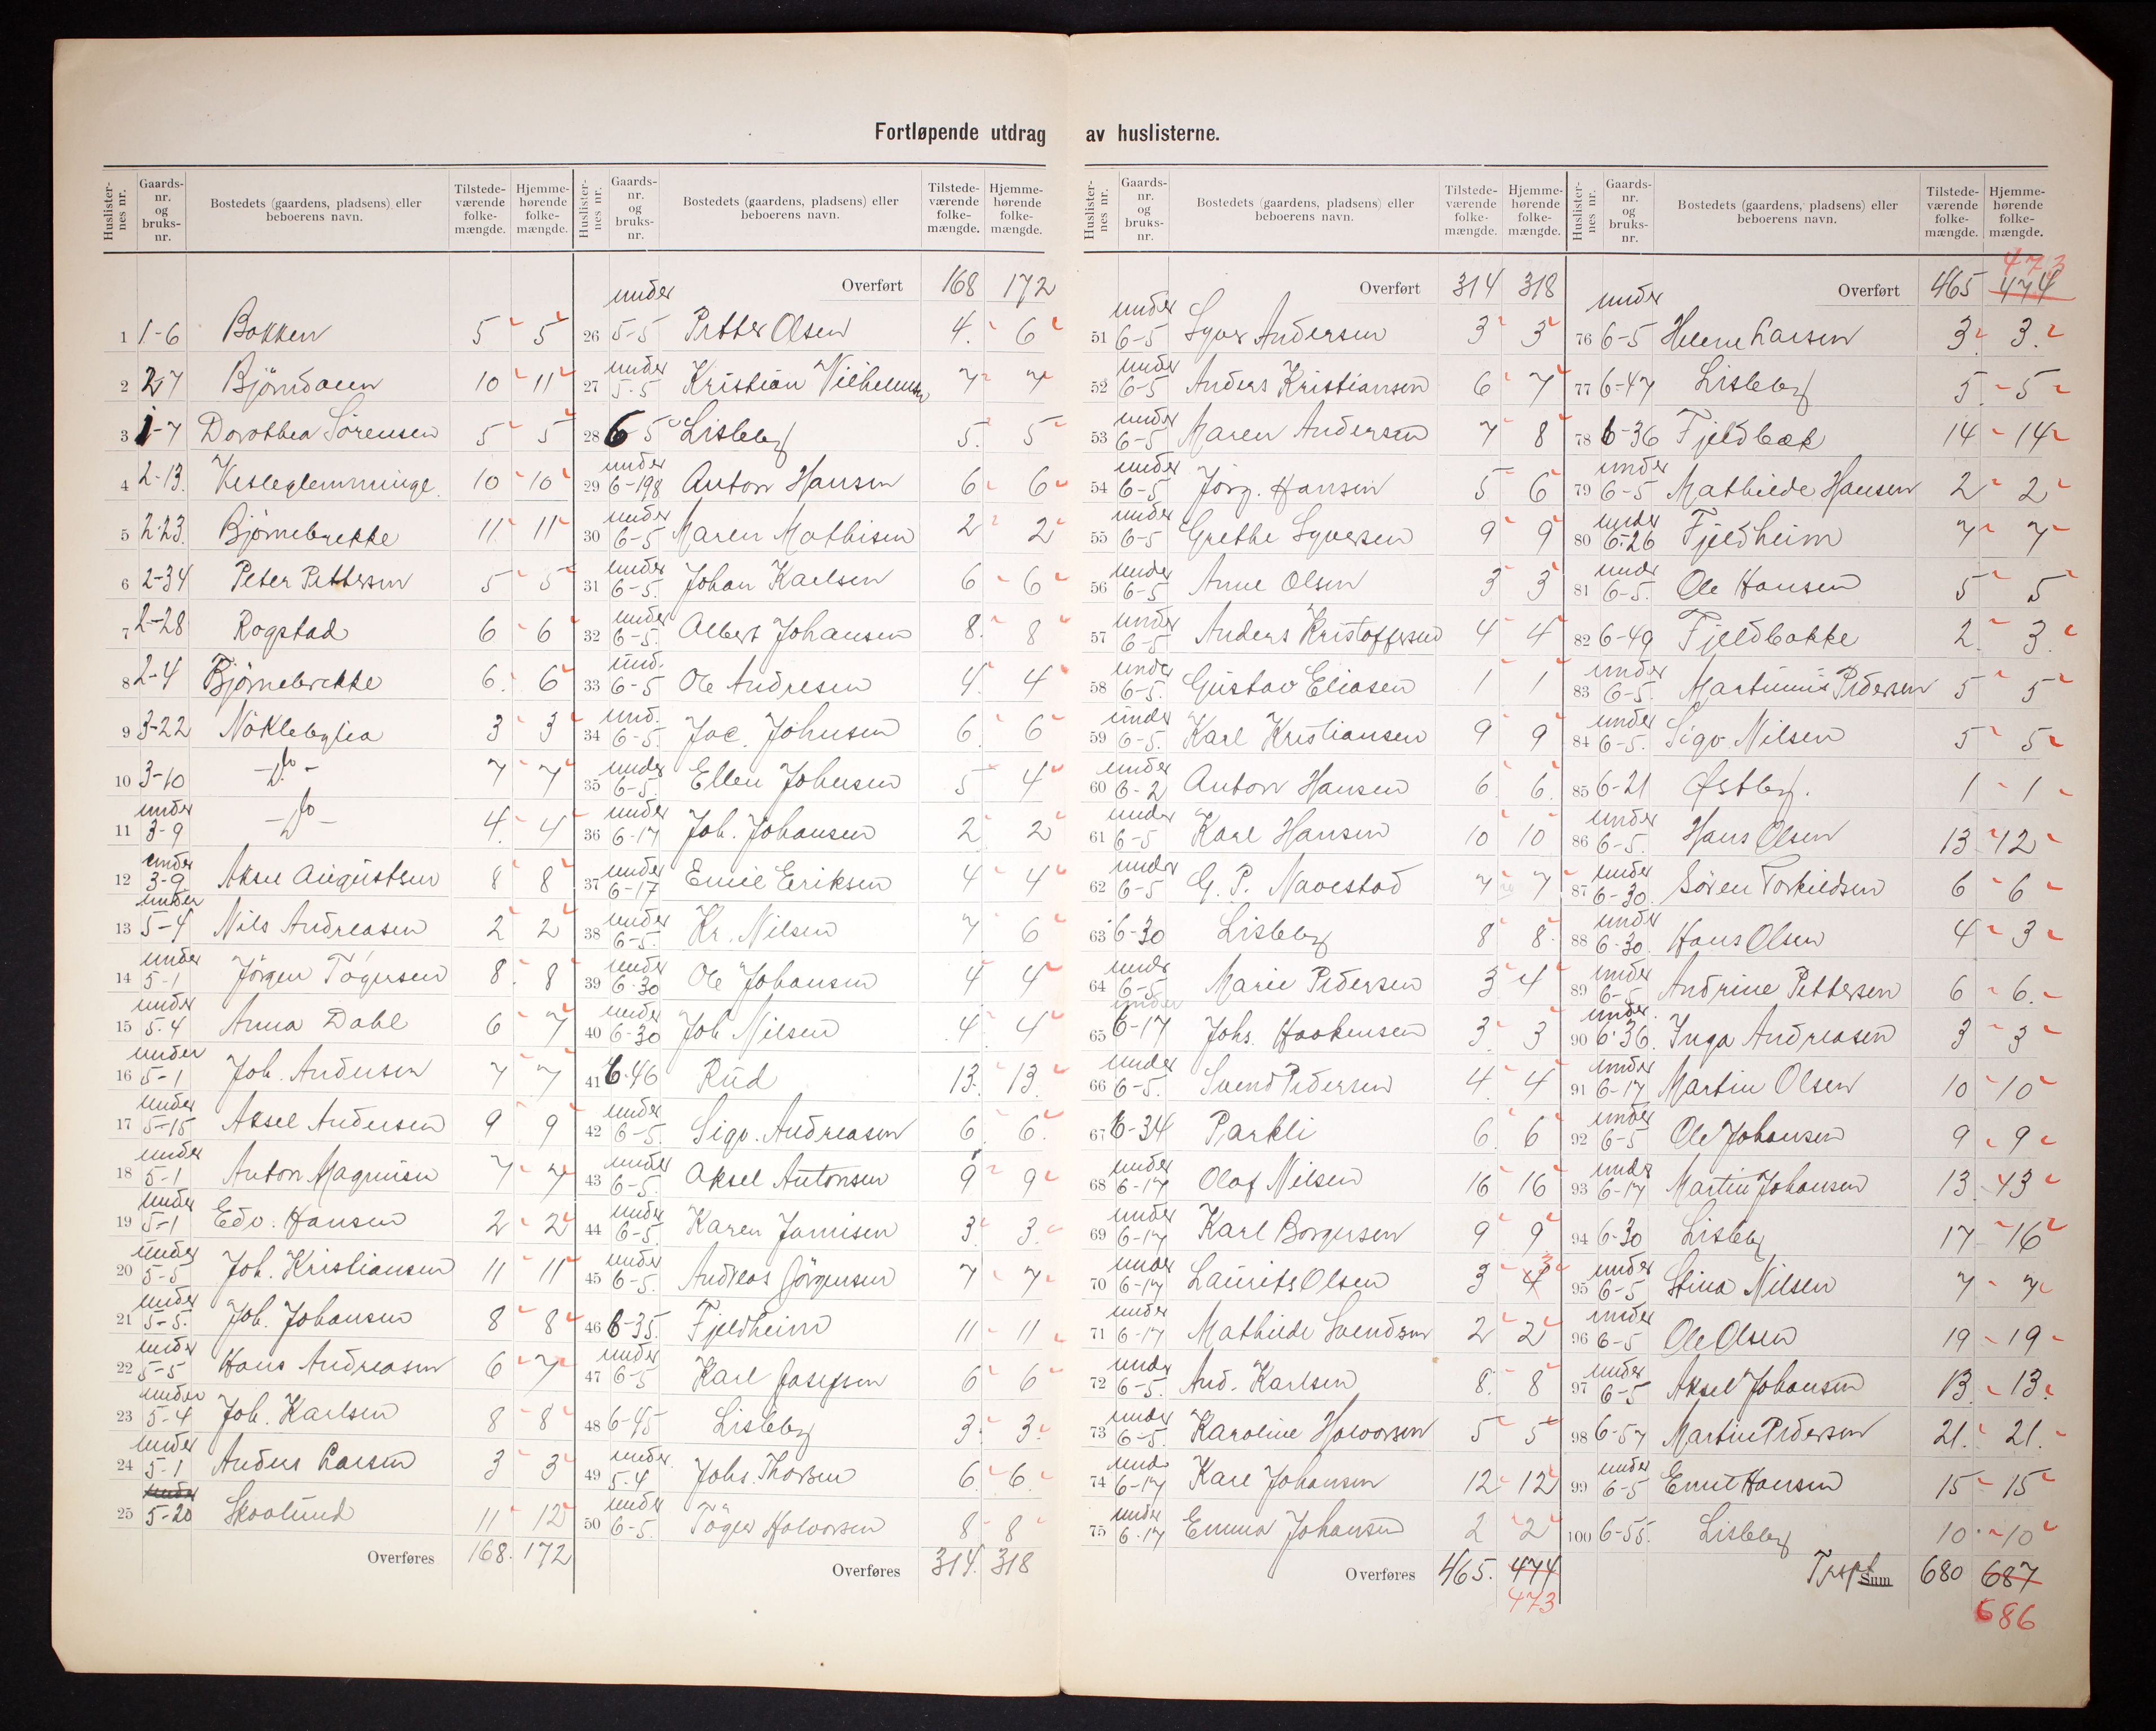 Fortløpende utdrag av huslisterne.
Huslister-nes nr. Gaards-nr. og bruks-nr. Bostedets (gaardens, pladsens) eller beboerens navn. Tilstede-værende folke-mængde. Hjemme-hørende folke-mængde.
1 1-6 Bakken 5 5
2 2-7 Björndalen 10 11
3 1-7 Dorothea Sörensen 5 5
4 2-13. Vesleglemminge. 10 10
5 2-23. Bjørnebrekke 11. 11
6 2-34 Peter Pettersen 5 5
7 2-28 Rogstad 6 6
8 2-4 Bjørnebrekke 6. 6
9 3-22 Nöklebylia 3 3
10 3-10 -Do- 7 7
11 under 3-9 -Do- 4. 4
12 under 3-9 Aksel Augustsen 8 8
13 under 5-4 Nils Andreasen 2 2
14 under 5-1 Jörgen Tögersen 8. 8
15 under 5-4 Anna Dahl 6 7
16 under 5-1 Joh. Andersen 7 7
17 under 5-15 Aksel Andersen 9 9
18 under 5-1 Anton Magnusen 7 7
19 under 5-1 Edv. Hansen 2 2
20 under 5-5 Joh. Kristiansen 11 11
21 under 5-5. Joh. Johansen 8 8
22 under 5-5 Hans Andreasen 6 7
23 under 5-4 Joh. Karlsen 8 8
24 under 5-1 Anders Larsen 3 3
25 under 5-20 Skovlund 11 12
Overføres 168. 172
Huslister-nes nr. Gaards-nr. og bruks-nr. Bostedets (gaardens, pladsens) eller beboerens navn. Tilstede-værende folke-mængde. Hjemme-hørende folke-mængde.
Overført 168 172
26 under 5-5 Petter Olsen 4. 6
27 under 5-5 Kristian Vilhelmsen 7 7
28 6-5 Lisleby 5. 5
29 under 6-198 Anton Hansen 6 6
30 under 6-5 Maren Mathisen 2 2
31 under 6-5. Johan Karlsen 6 6
32 under 6-5. Albert Johansen 8. 8
33 und. 6-5 Ole Andresen 4. 4
34 und. 6-5. Jac. Johnsen 6. 6
35 under 6-5. Ellen Johnsen 5 4
36 under 6-17 Joh. Johansen 2 2
37 under 6-17 Emil Eriksen 4 4
38 under 6-5. Kr. Nilsen 7 6
39 under 6-30 Ole Johansen 4 4
40 under 6-30 Joh Nilsen 4. 4
41 6-46 Rud 13. 13.
42 under 6-5. Sigv. Andreasen 6. 6.
43 under 6-5. Aksel Antonsen 9 9
44 under 6-5. Karen Jamisen 3. 3.
45 under 6-5. Andreas Jörgensen 7 7
46 6-35. Fjeldheim 11 11
47 under 6-5 Karl Josefsen 6 6
48 6-45 Lisleby 3. 3.
49 under. 5-4 Johs. Thorsen 6. 6.
50 under 6-5. Töger Halvorsen 8 8
Overføres 314. 318
Huslister-nes nr. Gaards-nr. og bruks-nr. Bostedets (gaardens, pladsens) eller beboerens navn. Tilstede-værende folke-mængde. Hjemme-hørende folke-mængde.
Overført 314 318
51 under 6-5 Syver Andersen 3 3
52 under 6-5 Anders Kristiansen 6 7
53 under 6-5 Maren Andersen 7 8
54 under 6-5 Jörg. Hansen 5 6
55 under 6-5 Grethe Syversen 9 9
56 under 6-5 Anne Olsen 3 3
57 under 6-5 Anders Kristoffersen 4 4
58 under 6-5. Gustav Eliasen 1 1
59 under 6-5. Karl Kristiansen 9 9
60 under 6-2 Anton Hansen 6. 6.
61 under 6-5 Karl Hansen 10 10
62 under 6-5 G. P. Navestad 7 7
63 6-30 Lisleby 8 8.
64 under 6-5 Marie Pedersen 3 4
65 under 6-17 Johs. Haakensen 3. 3
66 under 6-5. Svend Pedersen 4. 4
67 6-34 Parkli 6. 6
68 under 6-17 Olaf Nilsen 16 16
69 under 6-17 Karl Borgersen 9 9
70 under 6-17 Laurits Olsen 3 4 3
71 under 6-17 Mathilde Svendsen 2 2
72 under 6-5. And. Karlsen 8. 8
73 under 6-5. Karoline Halvorsen 5 5
74 under 6-17 Karl Johansen 12 12
75 under 6-17 Emma Johansen 2 2
Overføres 465. 474
473
Huslister-nes nr. Gaards-nr. og bruks-nr. Bostedets (gaardens, pladsens) eller beboerens navn. Tilstede-værende folke-mængde. Hjemme-hørende folke-mængde.
473
Overført 465 474
76 under 6-5 Helene Larsen 3. 3.
77 6-47 Lisleby 5. 5
78 6-36 Fjeldbæk 14 14
79 under 6-5 Mathilde Hansen 2 2
80 under 6-26 Fjeldheim 7 7
81 under 6-5. Ole Hansen 5 5
82 6-49 Fjeldbakke 2. 3.
83 under 6-5. Martinius Pedersen 5 5
84 under 6-5. Sigv. Nilsen 5 5
85 6-21 Østby. 1 1
86 under 6-5. Hans Olsen 13 12
87 under 6-30. Sören Torkildsen 6 6
88 under 6-30. Hans Olsen 4 3
89 under 6-5 Andrine Pettersen 6 6.
90 under. 6-36. Inga Andreasen 3 3
91 under 6-17 Martin Olsen 10 10
92 under 6-5 Ole Johansen 9 9
93 under 6-17 Martin Johansen 13 13
94 6-30 Lisleby 17 16
95 under 6-5 Stina Nilsen 7 7
96 under 6-5 Ole Olsen 19 19
97 under 6-5 Aksel Johansen 13. 13.
98 6-57 Martin Pedersen 21. 21.
99 under 6-5 Emil Hansen 15 15
100 6-55. Lisleby 10. 10
Sum 680 687
686